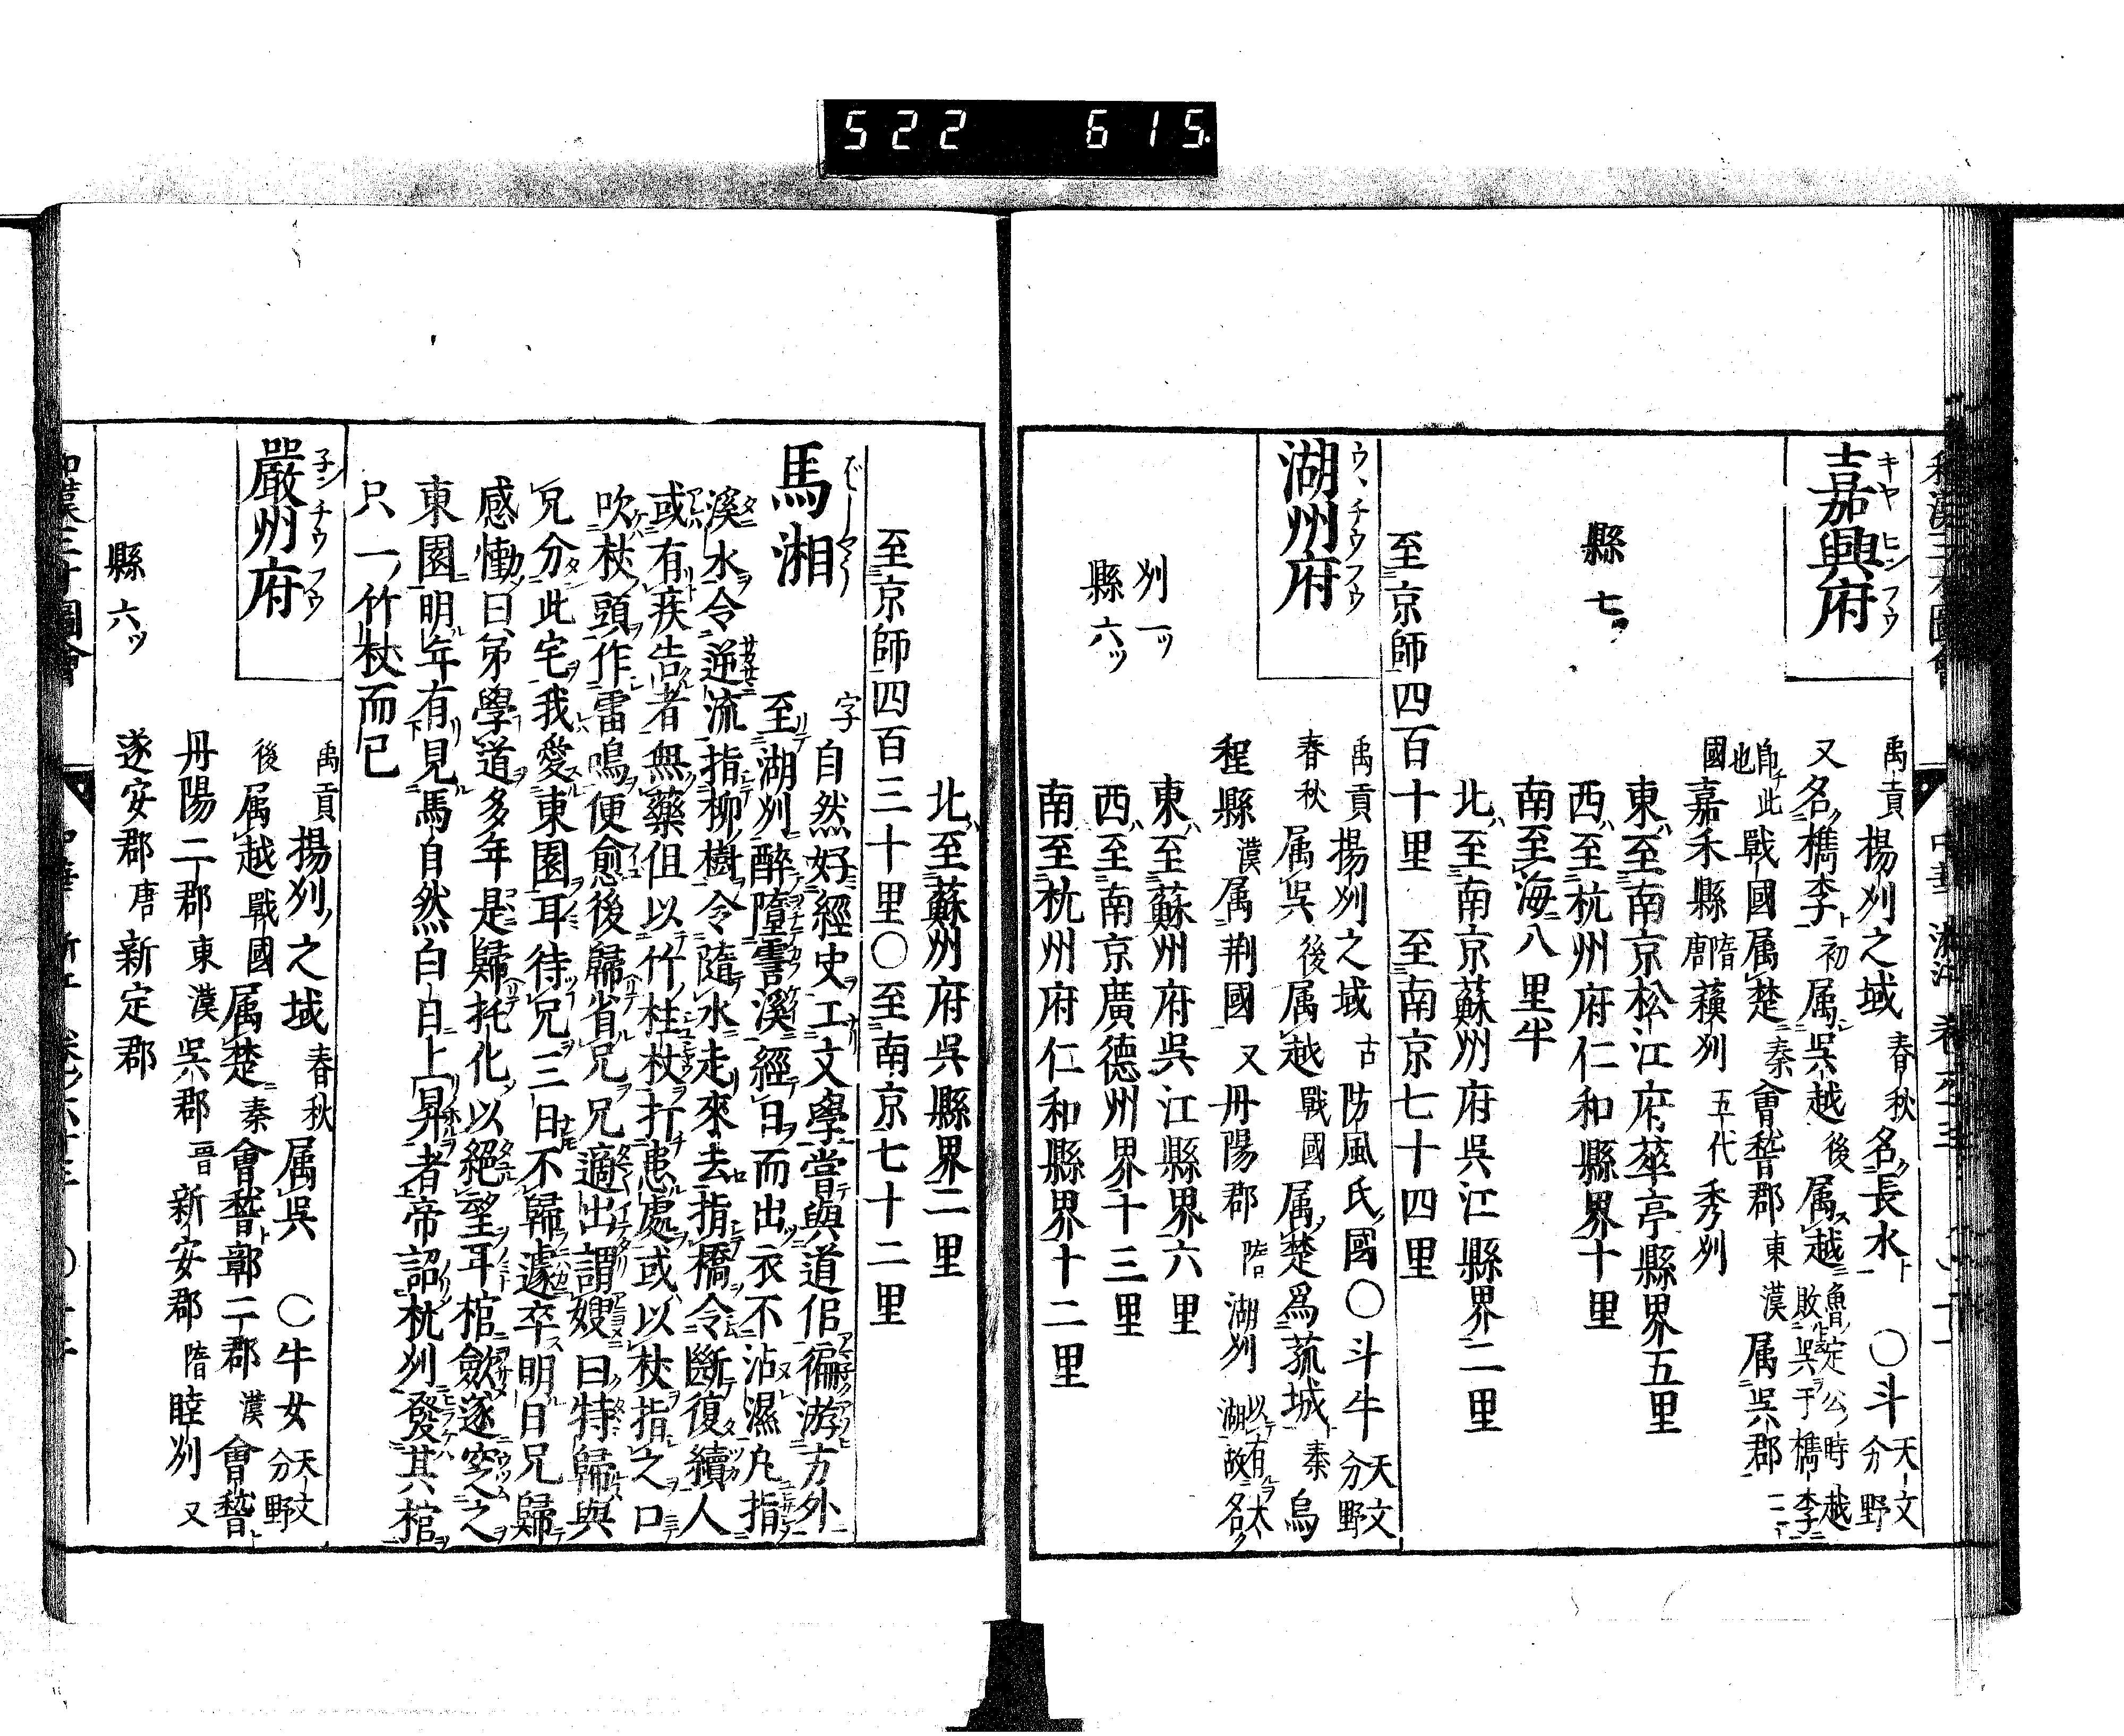 522 615.
嘉興府
キヤヒンフウ
禹貢揚刕之域春秋名長水○斗天文分野
又名檇李初属吳越後属越魯定公時越敗吳于檇李
即此也戰國属楚秦會稽郡東漢属吳郡三
國嘉禾縣隋唐蘓刕五代秀刕
縣七ツ
東至南京松江府華亭縣界五里
西至杭州府仁和縣界十里
南至海八里半
北至南京蘇州府吳江縣界二里
至京師四百十里 至南京七十四里
湖州府
ウヽチウフウ
禹貢揚刕之域古防風氏國○斗牛天文分野
春秋属吳後属越戰國属楚爲菰城秦烏
程縣漢属荆國又丹陽郡隋湖刕以有太湖故名
刕一ツ
縣六ツ
東至蘇州府吳江縣界六里
西至南京廣德州界十三里
南至杭州府仁和縣界十二里
北至蘇州府吳縣界二里
至京師四百三十里○至南京七十二里
馬湘
ばしやう
字自然好經史工文學嘗與道侶徧游方外
至湖刕醉墮霅溪經日而出衣不沾濕凡指
溪水令逆流指柳樹令隨水走來去指橋令斷復續人
或有疾告者無藥但以竹柱杖打患處或以杖指之口
吹杖頭作雷鳴便愈後歸省兄兄適出謂嫂曰特歸與
兄分此宅我愛東園耳待兄三日不歸遽卒明日兄歸
感慟曰弟學道多年是歸托化以絕望耳棺斂遂窆之
東園明年有見馬自然白日上昇者帝詔杭刕發其棺
只一竹杖而已
嚴州府
子ンチウフウ
禹貢揚刕之域春秋属吳○牛女天文分野
後属越戰國属楚秦會稽鄣二郡漢會稽
丹陽二郡東漢吳郡晋新安郡隋睦刕又
遂安郡唐新定郡
縣六ツ